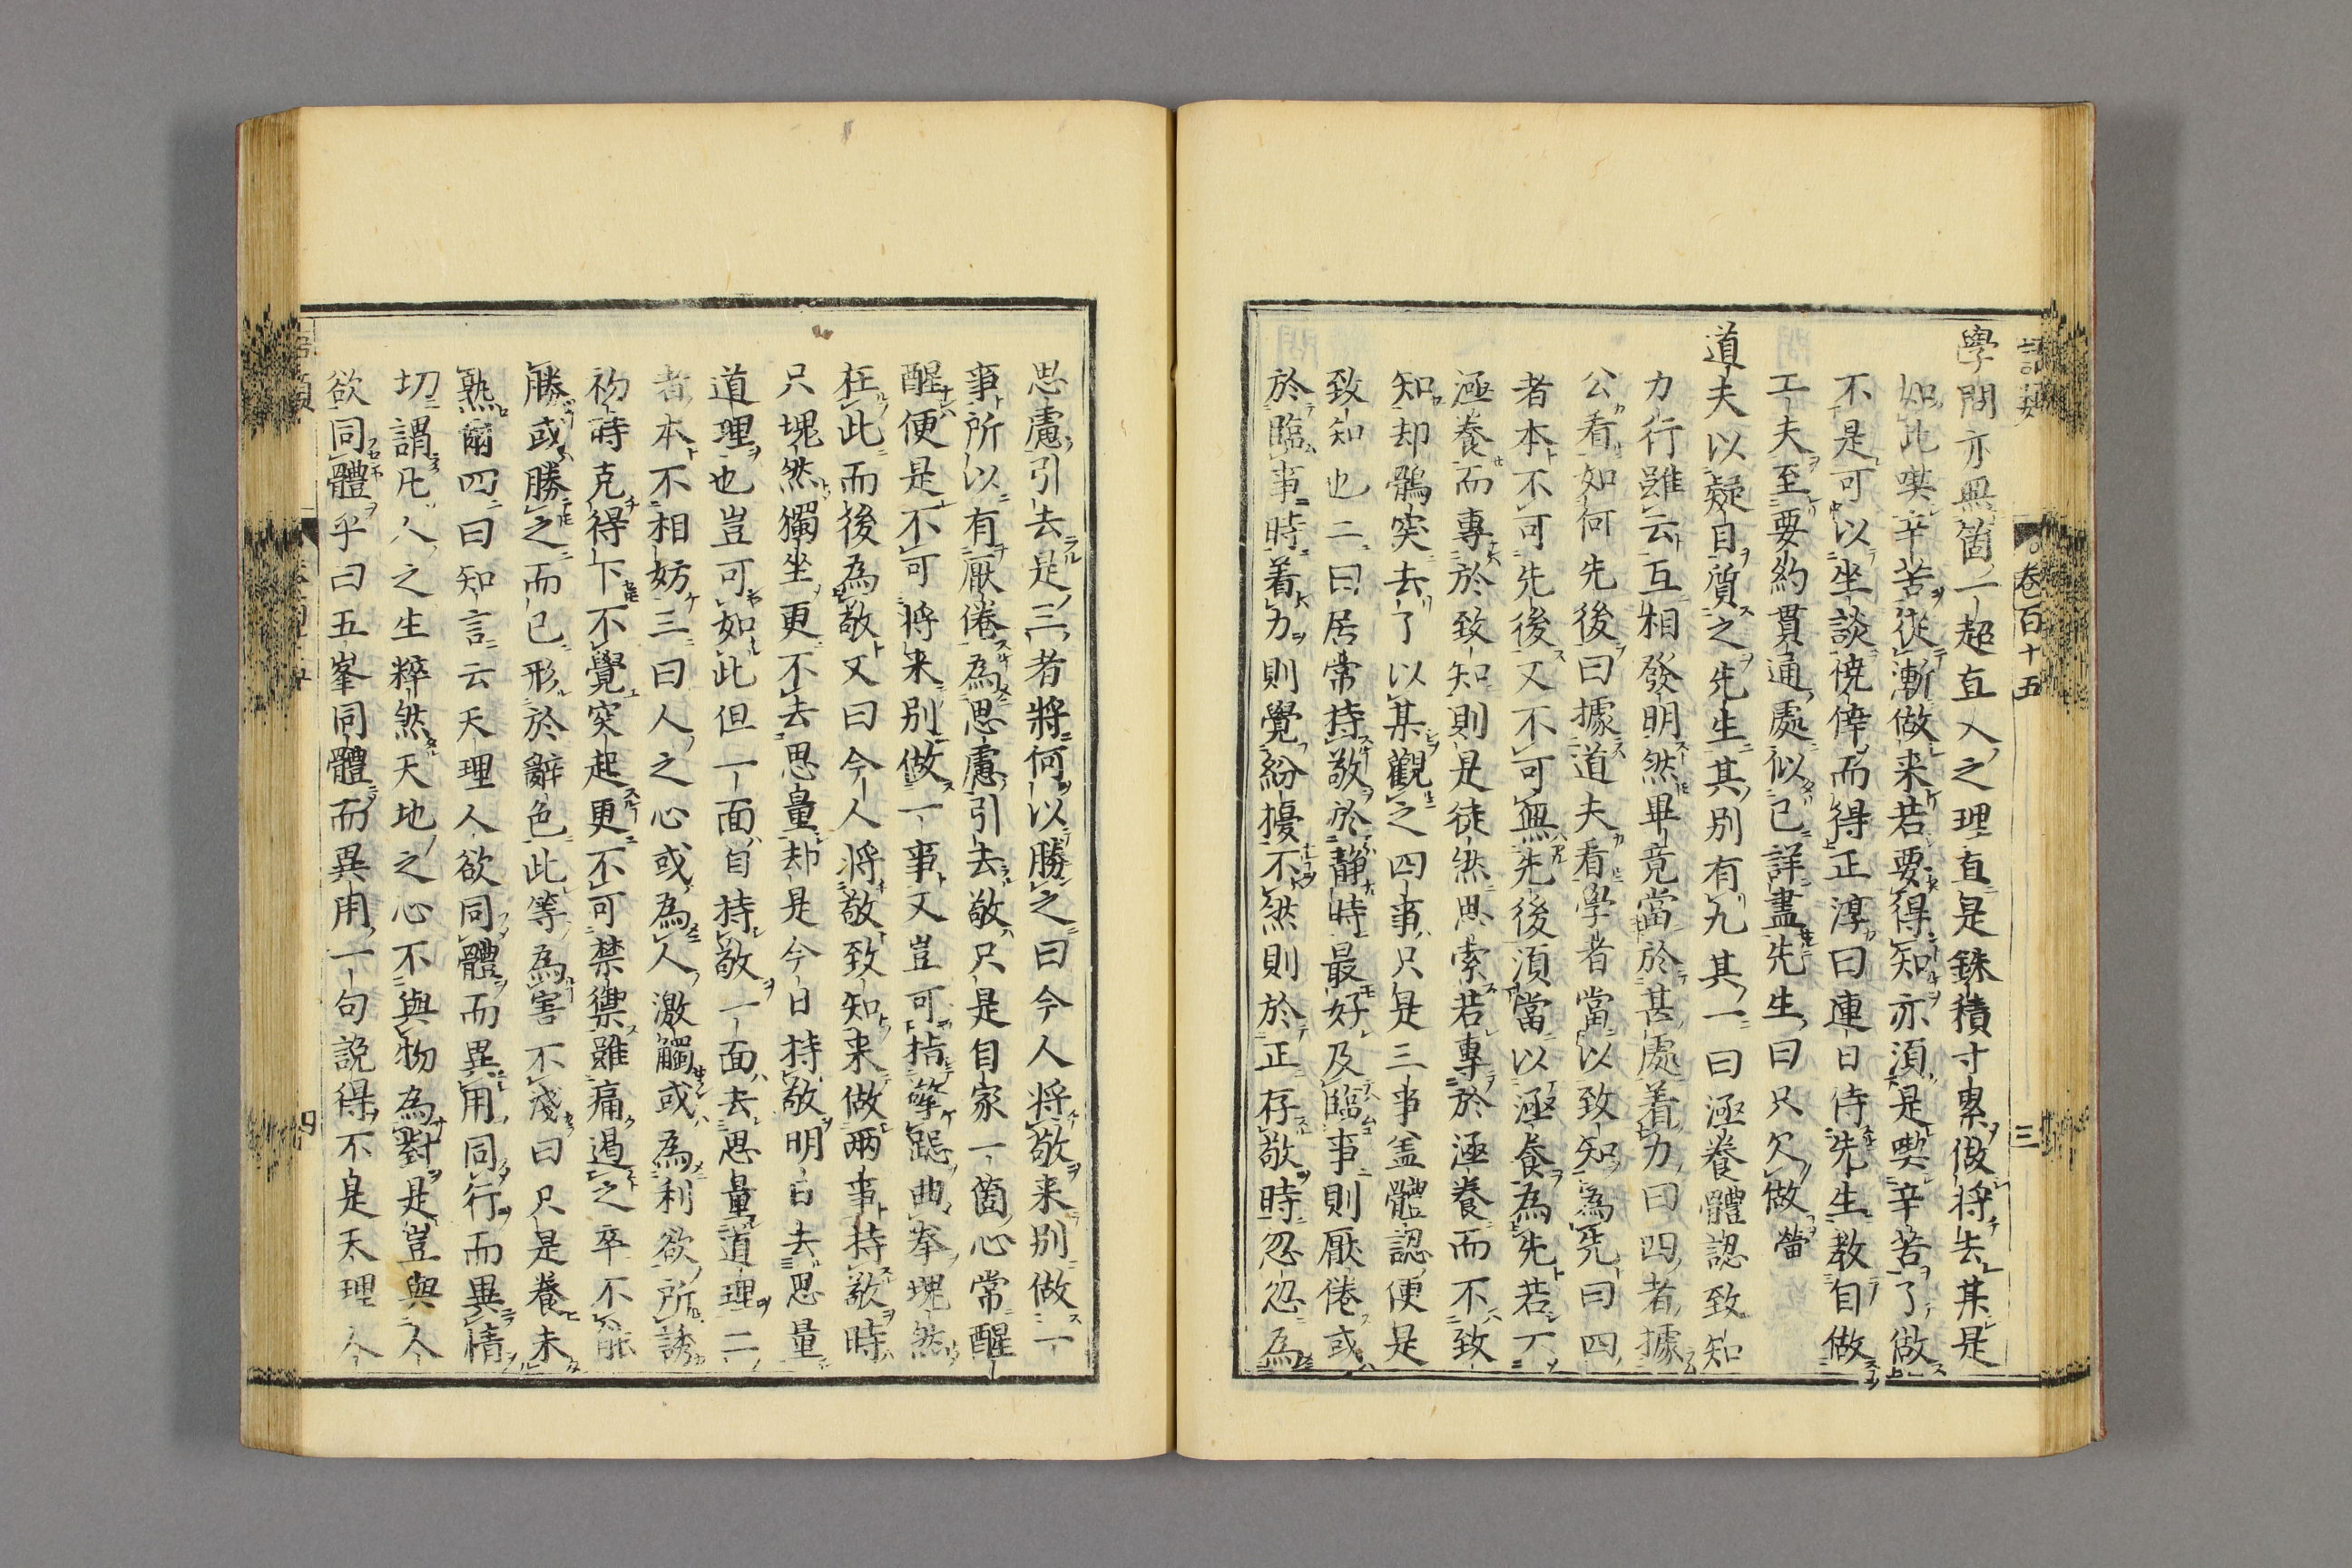 語類
卷百十五
三
學問亦無箇一超直入之理直是銖積寸累做將去某是
如此喫辛苦從漸做来若要得知亦須是喫辛苦了做
不是可以坐談僥倖而得正淳曰連日侍先生教自做
工夫至要約貫通處似已詳盡先生曰只欠做㽦
道夫以疑目質之先生其別有九其一曰涵養體認致知
力行雖云互相發明然畢竟當於甚處着力曰四者據
公看如何先後曰據道夫看學者當以致知為先曰四
者本不可先後又不可無先後須當以涵養為先若不
涵養而專於致知則是徒然思索若專於涵養而不致
知却鶻突去了以某觀之四事只是三事盖體認便是
致知也二曰居常持敬於靜時最好及臨事則厭倦或
於臨事時着力則覺紛擾不然則於正存敬時忽忽為
思慮引去是三者將何以勝之曰今人將敬来別做一
事所以有厭倦為思慮引去敬只是自家一箇心常醒
醒便是不可將来別做一事又豈可指擎跽曲拳塊然
在此而後為敬又曰今人將敬致知来做兩事持敬時
只塊然獨坐更不去思量却是今日持敬明日去思量
道理也豈可如此但一面自持敬一面去思量道理二
者本不相妨三曰人之心或為人激觸或為利欲所誘
初時克得下不覺突起更不可禁禦雖痛遏之卒不能
勝或勝之而已形於辭色此等為害不淺曰只是養未
熟爾四曰知言云天理人欲同體而異用同行而異情
切謂凡人之生粹然天地之心不與物為對是豈與人
欲同體乎曰五峯同體而異用一句說得不是天理人
類
四